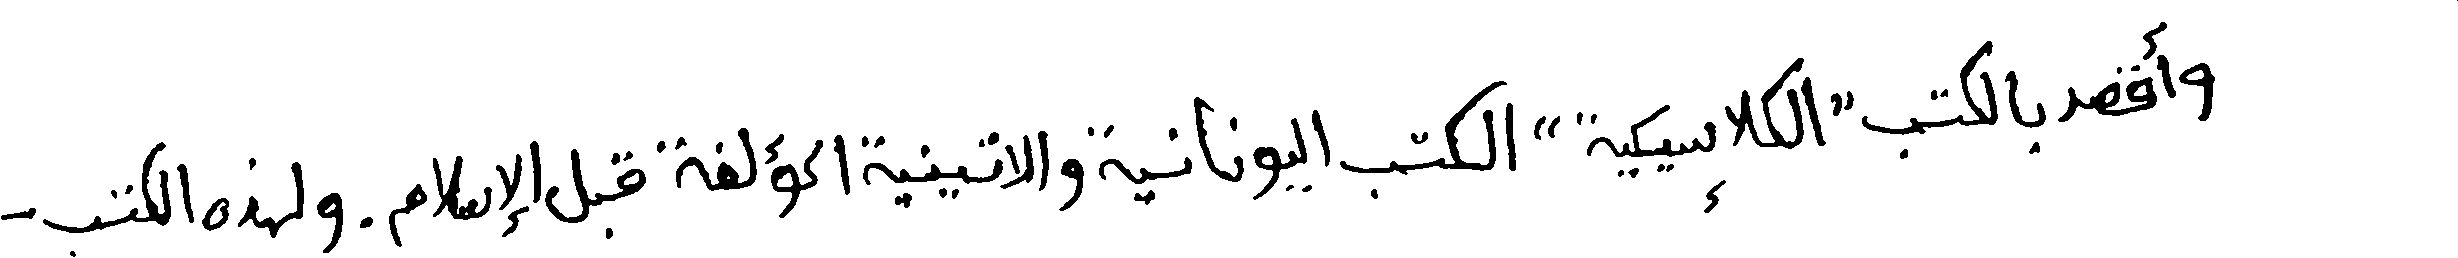 وأقصد بالكتب "الكلاإسيكية" الكتب اليونانية والاتينية المؤلفة قبل الإسلام. ولهذه الكتب -